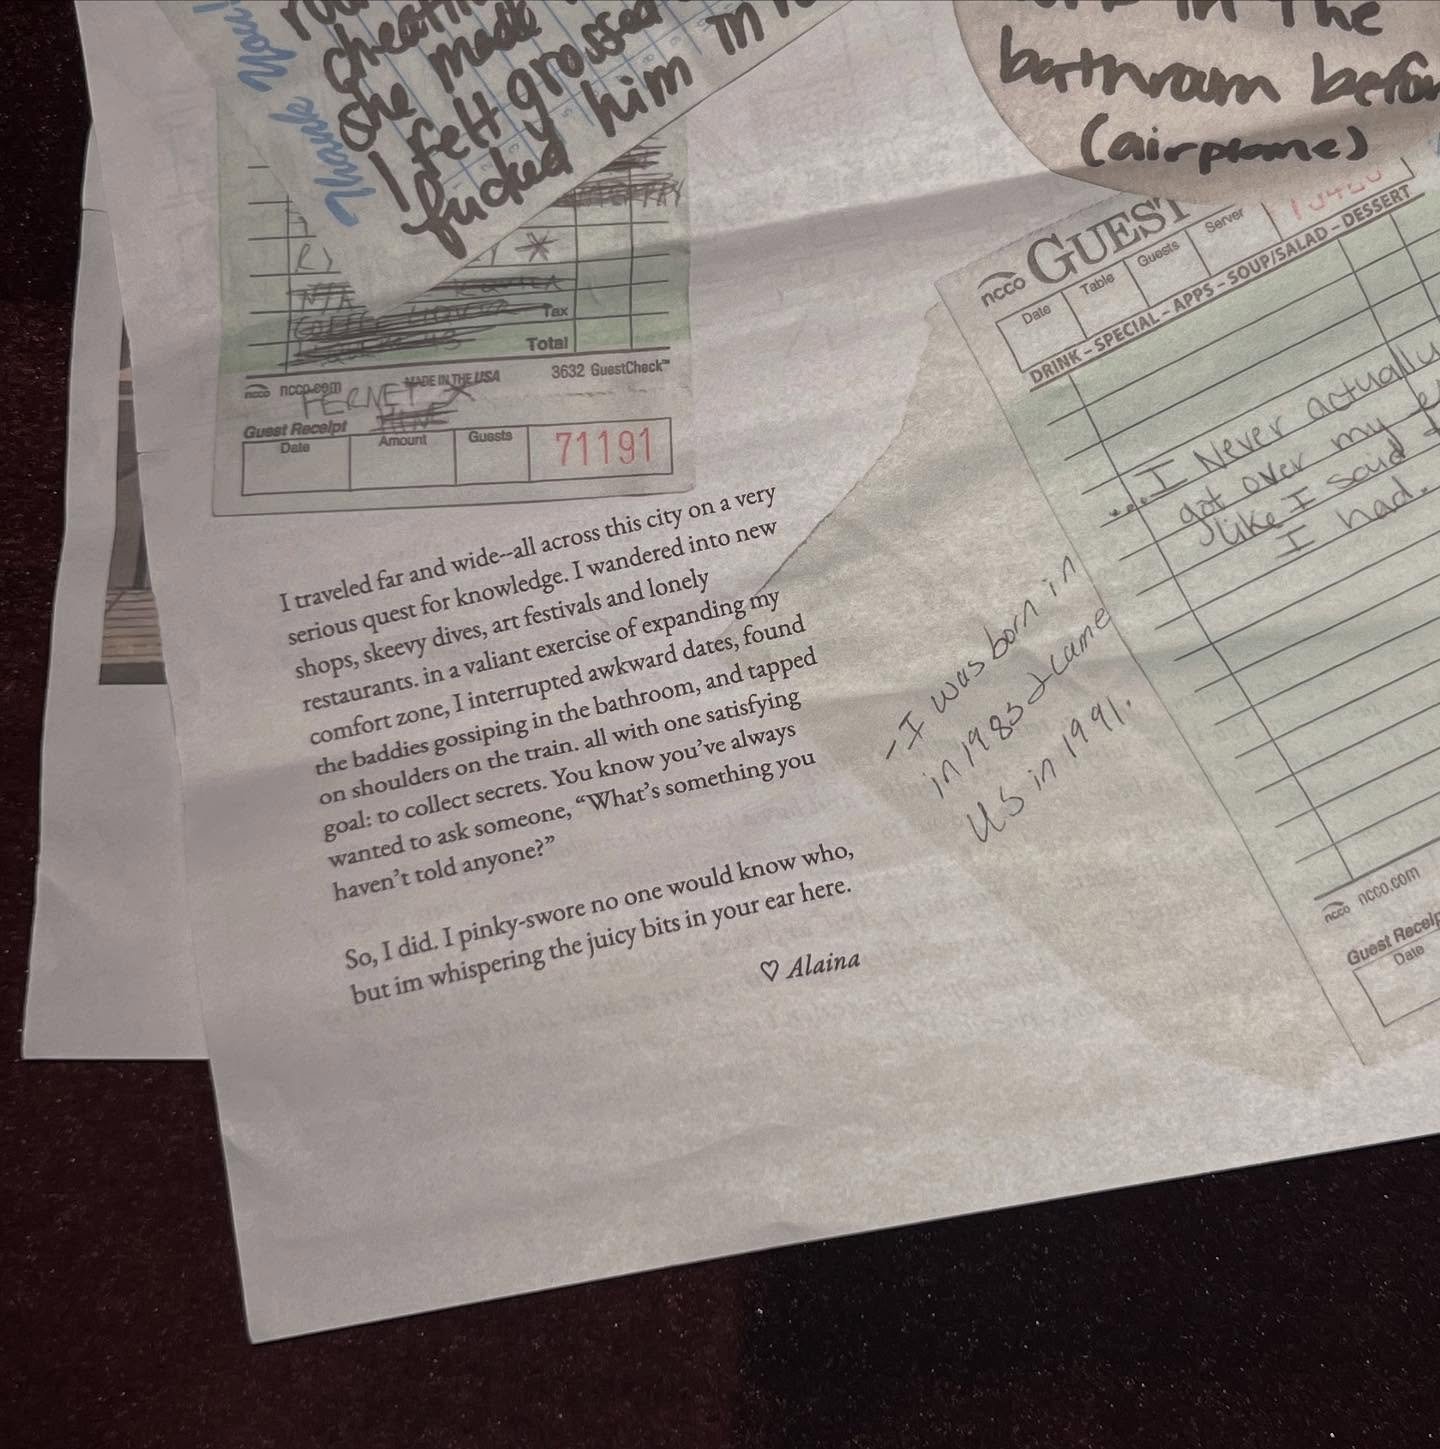 Thank You!
cheatin
She made
I felt grossed
fucked him in
in the
bathroom befor
(airplane)
*
Tax
Total
ncco.com MADE IN THE USA 3632 GuestCheck™
FERNET
Guest Receipt
Date Amount Guests 71191
ncco GUEST
Date Table Guests Server
DRINK – SPECIAL – APPS – SOUP/SALAD – DESSERT
...I Never actually
got over my e
like I said
I had.
I traveled far and wide--all across this city on a very
serious quest for knowledge. I wandered into new
shops, skeevy dives, art festivals and lonely
restaurants. in a valiant exercise of expanding my
comfort zone, I interrupted awkward dates, found
the baddies gossiping in the bathroom, and tapped
on shoulders on the train. all with one satisfying
goal: to collect secrets. You know you've always
wanted to ask someone, “What's something you
haven't told anyone?”
So, I did. I pinky-swore no one would know who,
but im whispering the juicy bits in your ear here.
♡ Alaina
- I was born in
in 1983 & came
US in 1991.
ncco ncco.com
Guest Receip
Date